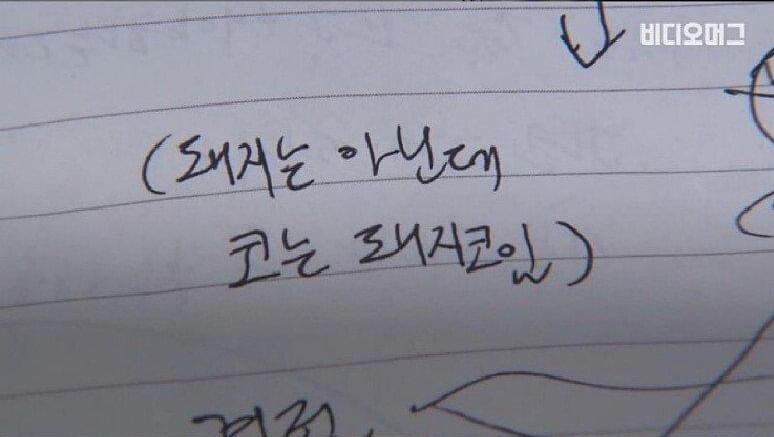 비디오머그
(돼지는 아닌데
코는 돼지코임)